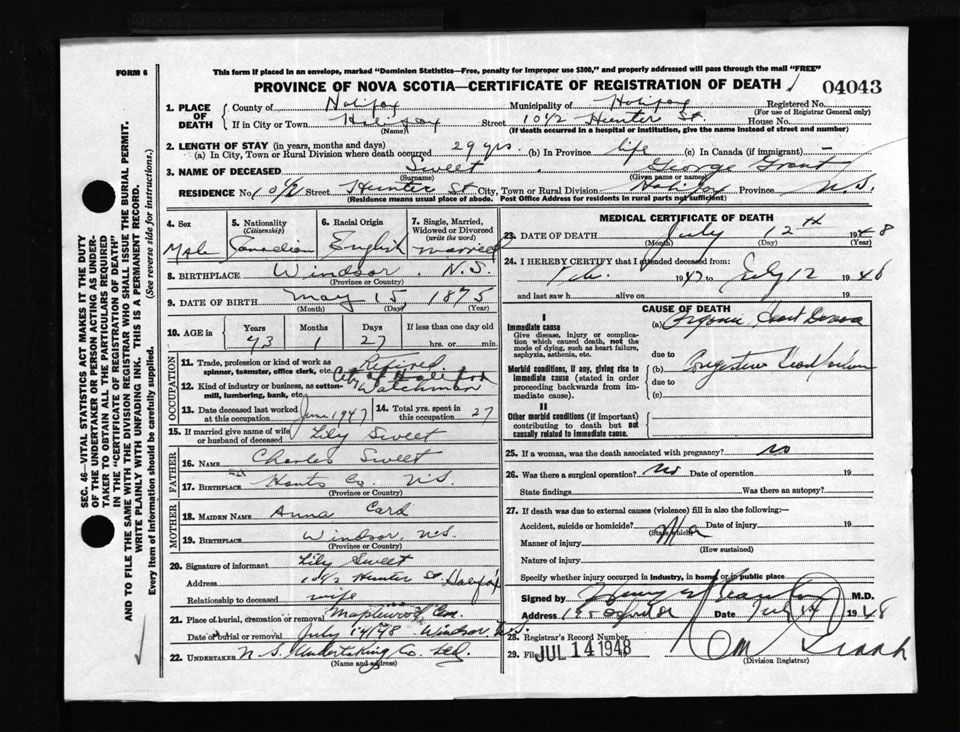 FORM 6
This form if placed in an envelope, marked "Dominion Statistics—Free, penalty for improper use $300," and properly addressed will pass through the mail "FREE"
PROVINCE OF NOVA SCOTIA—CERTIFICATE OF REGISTRATION OF DEATH 04043
1. PLACE OF DEATH County of Halifax Municipality of Halifax Registered No.
(For use of Registrar General only)
If in City or Town Halifax Street 10 1/2 Hunter St. House No.
(Name) (If death occurred in a hospital or institution, give the name instead of street and number)
2. LENGTH OF STAY (in years, months and days)
(a) In City, Town or Rural Division where death occurred 29 yrs. (b) In Province life (c) In Canada (if immigrant) —
3. NAME OF DECEASED Sweet George Grant
(Surname) (Given name or names)
RESIDENCE No. 10 1/2 Street Hunter St City, Town or Rural Division Halifax Province N.S.
(Residence means usual place of abode. Post Office Address for residents in rural parts not sufficient)
4. Sex Male
5. Nationality (Citizenship) Canadian
6. Racial Origin English
7. Single, Married, Widowed or Divorced (write the word) Married
8. BIRTHPLACE Windsor, N.S.
(Province or Country)
9. DATE OF BIRTH May 15, 1875
(Month) (Day) (Year)
10. AGE in Years 73 Months 1 Days 27 If less than one day old
hrs. or min.
OCCUPATION
11. Trade, profession or kind of work as spinner, teamster, office clerk, etc. Retired
12. Kind of industry or business, as cotton-mill, lumbering, bank, etc. City of Halifax Watchman
13. Date deceased last worked at this occupation June 1947
14. Total yrs. spent in this occupation 27
15. If married give name of wife or husband of deceased Lily Sweet
FATHER
16. NAME Charles Sweet
17. BIRTHPLACE Hants Co. N.S.
(Province or Country)
MOTHER
18. MAIDEN NAME Anna Card
19. BIRTHPLACE Windsor, N.S.
(Province or Country)
20. Signature of informant Lily Sweet
Address 10 1/2 Hunter St Halifax
Relationship to deceased wife
21. Place of burial, cremation or removal Maplewood Cem.
Date of burial or removal July 14/48 Windsor N.S.
22. UNDERTAKER N.S. Undertaking Co. Ltd.
(Name and address)
MEDICAL CERTIFICATE OF DEATH
23. DATE OF DEATH July 12th 1948
(Month) (Day) (Year)
24. I HEREBY CERTIFY that I attended deceased from
1947 to July 12 1948
and last saw h alive on 19
CAUSE OF DEATH
I
Immediate cause
Give disease, injury or complication which caused death, not the mode of dying, such as heart failure, asphyxia, asthenia, etc.
(a) Organic Heart Disease
due to
Morbid conditions, if any, giving rise to immediate cause (stated in order proceeding backwards from immediate cause).
(b) Congestive Heart failure
due to
(c)
II
Other morbid conditions (if important) contributing to death but not causally related to immediate cause.
25. If a woman, was the death associated with pregnancy? no
26. Was there a surgical operation? no Date of operation 19
State findings Was there an autopsy?
27. If death was due to external causes (violence) fill in also the following:—
Accident, suicide or homicide? Date of injury 19
(State which)
Manner of injury
(How sustained)
Nature of injury
Specify whether injury occurred in industry, in home, or in public place
Signed by M.D.
Address Date July 14 1948
28. Registrar's Record Number
29. Filed JUL 14 1948
(Division Registrar)
SEC. 46—VITAL STATISTICS ACT MAKES IT THE DUTY OF THE UNDERTAKER OR PERSON ACTING AS UNDERTAKER TO OBTAIN ALL THE PARTICULARS REQUIRED IN THE "CERTIFICATE OF REGISTRATION OF DEATH" AND TO FILE THE SAME WITH THE DIVISION REGISTRAR WHO SHALL ISSUE THE BURIAL PERMIT.
WRITE PLAINLY WITH UNFADING INK. THIS IS A PERMANENT RECORD.
Every item of information should be carefully supplied. (See reverse side for instructions.)